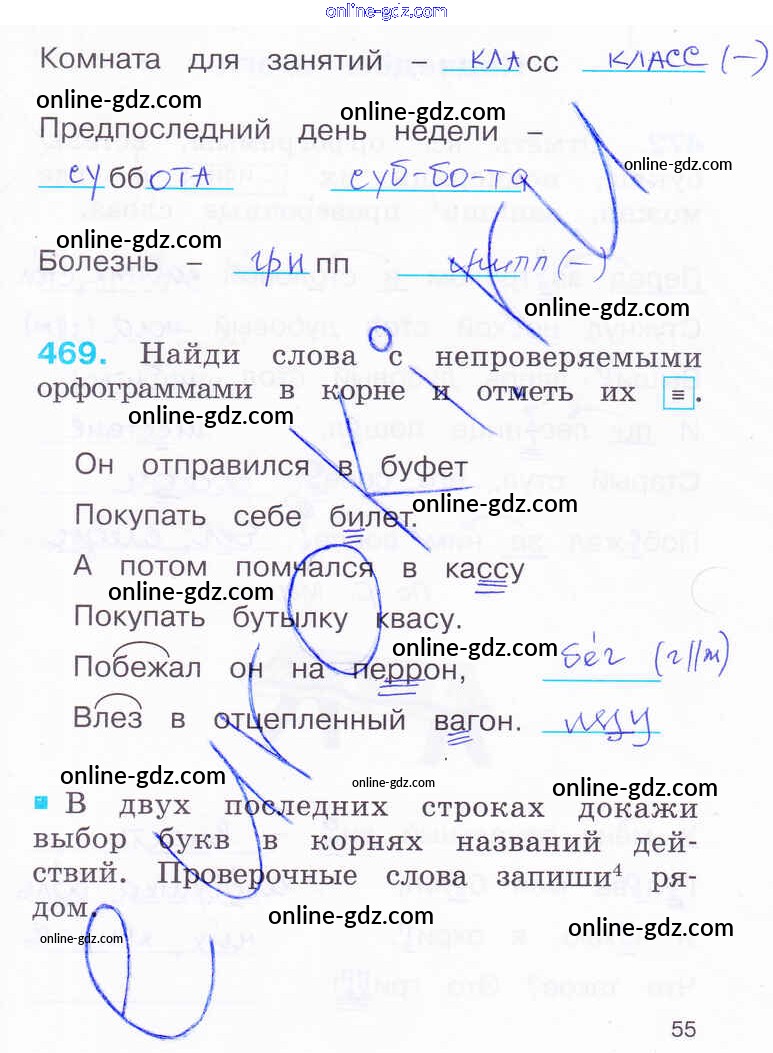 online-gdz.com
Комната для занятий – класс класс (–)
online-gdz.com online-gdz.com
Предпоследний день недели –
online-gdz.com
суббота суб-бо-та
online-gdz.com
Болезнь – грипп грипп (–)
online-gdz.com
469. Найди слова с непроверяемыми
орфограммами в корне и отметь их ≡.
online-gdz.com
Он отправился в буфет
online-gdz.com
Покупать себе билет.
А потом помчался в кассу
online-gdz.com
Покупать бутылку квасу.
online-gdz.com
Побежал он на перрон, бег (г||ж)
Влез в отцепленный вагон. лезу
online-gdz.com online-gdz.com online-gdz.com
В двух последних строках докажи
выбор букв в корнях названий дей-
ствий. Проверочные слова запиши⁴ ря-
дом.
online-gdz.com online-gdz.com online-gdz.com
55